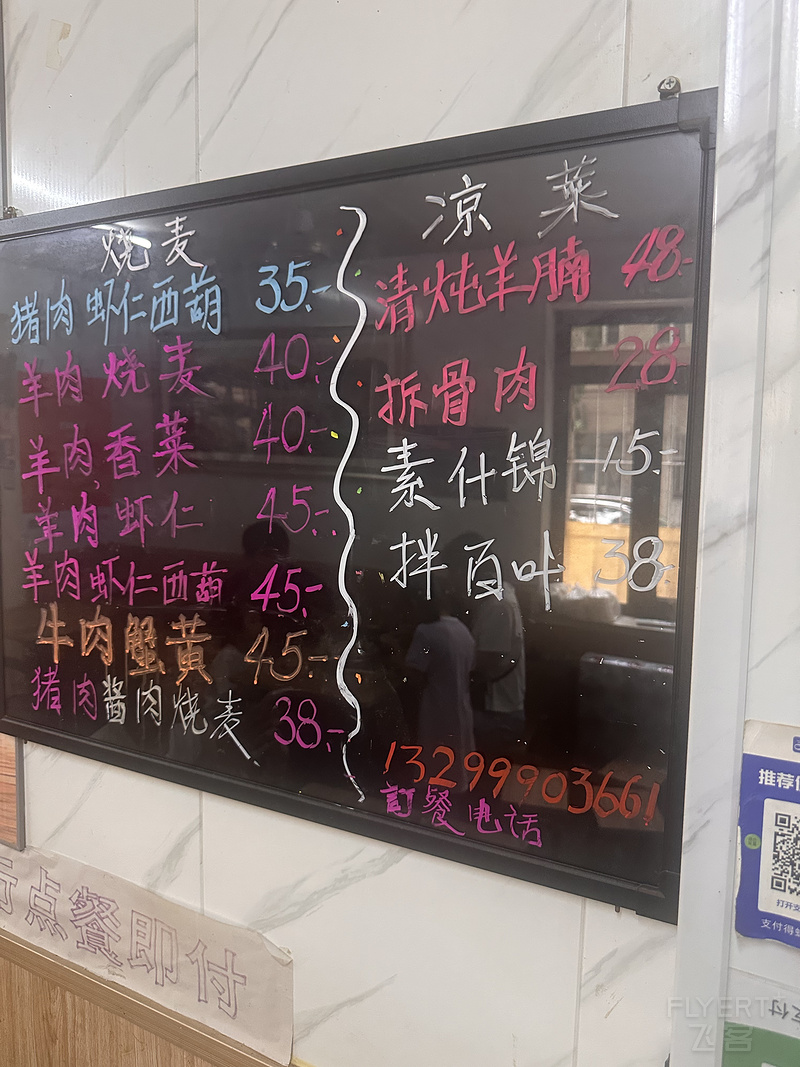 烧麦
猪肉虾仁西葫 35.-
羊肉烧麦 40.-
羊肉香菜 40.-
羊肉虾仁 45.-
羊肉虾仁西葫 45.-
牛肉蟹黄 45.-
猪肉酱肉烧麦 38.-
凉菜
清炖羊腩 48.-
拆骨肉 28.-
素什锦 15.-
拌百叶 38.-
13299903661
訂餐电话
点餐即付
推荐
打开支
支付得
FLYERT
飞客